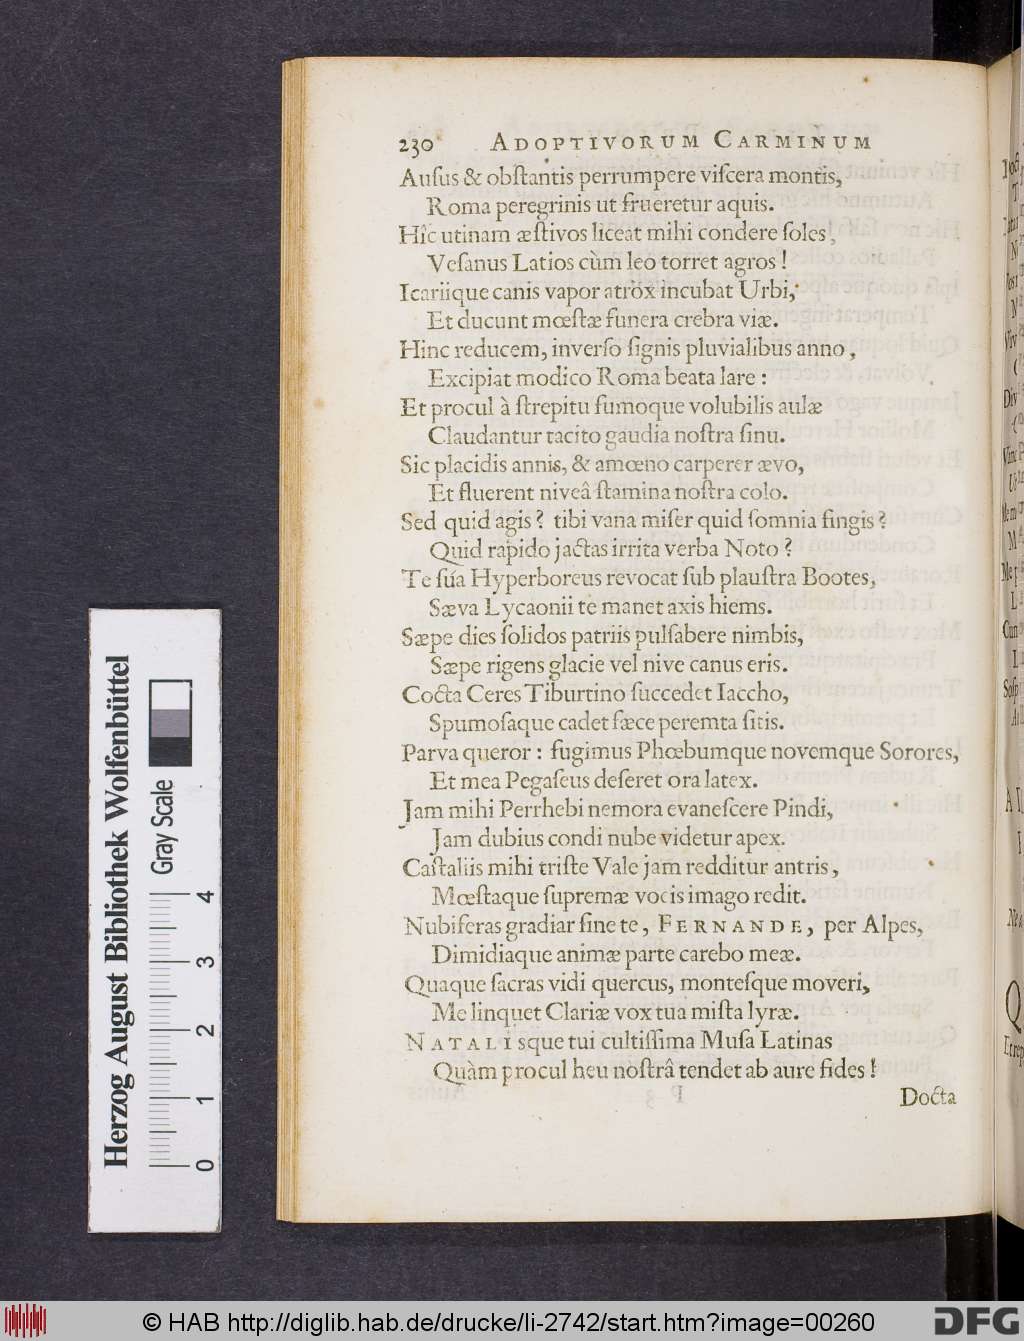 230 ADOPTIVORUM CARMINUM
Auſus & obſtantis perrumpere viſcera montis,
Roma peregrinis ut frueretur aquis.
Hîc utinam æſtivos liceat mihi condere ſoles,
Veſanus Latios cùm leo torret agros!
Icariique canis vapor atrox incubat Urbi,
Et ducunt mœſtæ funera crebra viæ.
Hinc reducem, inverſo ſignis pluvialibus anno,
Excipiat modico Roma beata lare:
Et procul à ſtrepitu fumoque volubilis aulæ
Claudantur tacito gaudia noſtra ſinu.
Sic placidis annis, & amœno carperer ævo,
Et fluerent niveâ ſtamina noſtra colo.
Sed quid agis? tibi vana miſer quid ſomnia fingis?
Quid rapido jactas irrita verba Noto?
Te ſua Hyperboreus revocat ſub plauſtra Bootes,
Sæva Lycaonii te manet axis hiems.
Sæpe dies ſolidos patriis pulſabere nimbis,
Sæpe rigens glacie vel nive canus eris.
Cocta Ceres Tiburtino ſuccedet Iaccho,
Spumoſaque cadet fæce peremta ſitis.
Parva queror: fugimus Phœbumque novemque Sorores,
Et mea Pegaſeus deſeret ora latex.
Jam mihi Perrhebi nemora evaneſcere Pindi,
Jam dubius condi nube videtur apex.
Caſtaliis mihi triſte Vale jam redditur antris,
Mœſtaque ſupremæ vocis imago redit.
Nubiferas gradiar ſine te, FERNANDE, per Alpes,
Dimidiaque animæ parte carebo meæ.
Quaque ſacras vidi quercus, monteſque moveri,
Me linquet Clariæ vox tua miſta lyræ.
NATALISque tui cultiſſima Muſa Latinas
Quàm procul heu noſtrâ tendet ab aure fides!
Docta
Herzog August Bibliothek Wolfenbüttel
Gray Scale
0 1 2 3 4
© HAB http://diglib.hab.de/drucke/li-2742/start.htm?image=00260
DFG